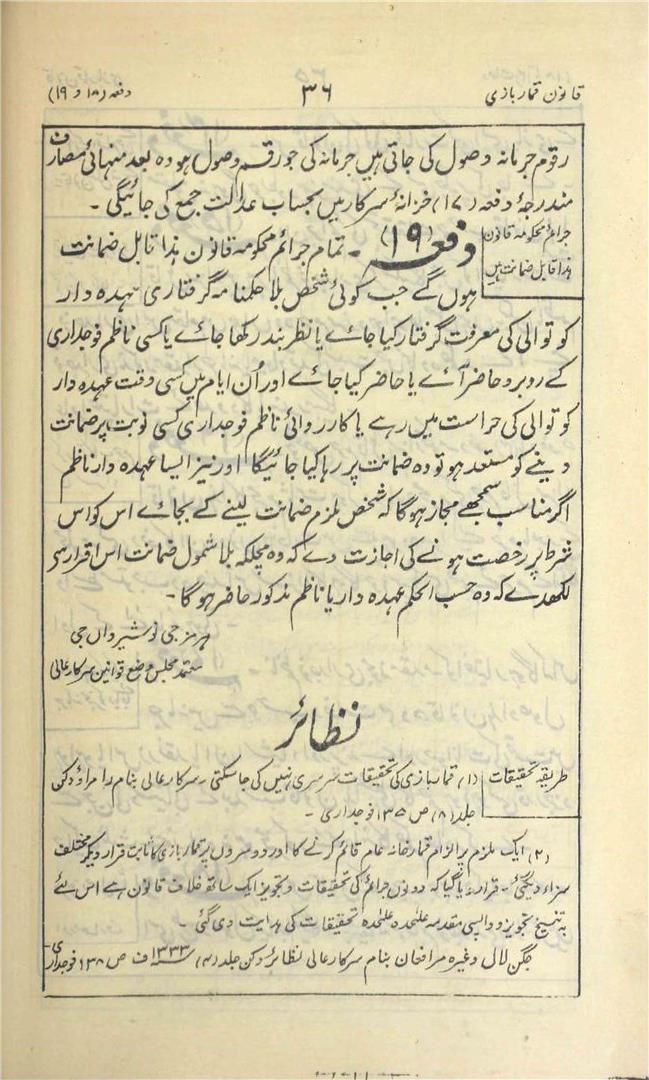 قانون قمار بازی
۳۶
دفعہ (۱۸ و ۱۹)
رقوم جرمانہ وصول کی جاتی ہیں جرمانہ کی جو رقم وصول ہو وہ بعد منہائی مصارف
مندرجۂ دفعہ (۱۷) خزانۂ سرکار میں بحساب عدالت جمع کی جائیگی ۔
جرائم محکومہ قانون
ہذا قابل ضمانت ہیں
دفعہ (۱۹) ۔ تمام جرائم محکومہ قانون ہذا قابل ضمانت
ہوں گے جب کوئی شخص بلا حکمنامہ گرفتاری عہدہ دار
کوتوالی کی معرفت گرفتار کیا جائے یا نظر بند رکھا جائے یا کسی ناظم فوجداری
کے روبرو حاضر آئے یا حاضر کیا جائے اور اُن ایام میں کسی وقت عہدہ دار
کوتوالی کی حراست میں رہے یا کارروائی ناظم فوجداری کسی نوبت پر ضمانت
دینے کو مستعد ہو تو وہ ضمانت پر رہا کیا جائیگا اور نیز ایسا عہدہ دار ناظم
اگر مناسب سمجھے مجاز ہوگا کہ شخص ملزم ضمانت لینے کے بجائے اس کو اس
شرط پر رخصت ہونے کی اجازت دے کہ وہ مچلکہ بلا شمول ضمانت اس اقرار سے
لکھدے کہ وہ حسب الحکم عہدہ دار یا ناظم مذکور حاضر ہوگا ۔
ہرمزجی نوشیرواں جی
معتمد مجلس وضع قوانین سرکار عالی
نظائر
طریقہ تحقیقات
(۱) قمار بازی کی تحقیقات سرسری نہیں کی جا سکتی ۔ سرکار عالی بنام راماؤ دکن
جلد (۸) ص ۱۳۵ فوجداری ۔
(۲) ایک ملزم پر الزام قمار خانہ عام قائم کرنے کا اور دوسروں پر قمار بازی کا ثابت قرار دیکر مختلف
سزاء دیگئی ۔ قرار دیا گیا کہ دونوں جرائم کی تحقیقات و تجویز ایک ساتھ خلاف قانون ہے اس لئے
بہ تنسیخ تجویز و واپسی مقدمہ علٰحدہ علٰحدہ تحقیقات کی ہدایت دی گئی ۔
جگن لال وغیرہ مرافعان بنام سرکار عالی نظائر دکن جلد (۴) ۱۳۳۳ ف ص ۱۳۸ فوجداری ۔